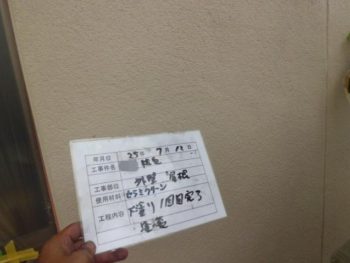 年月日 25年 7月 12日
工事件名 様邸
工事部位 外壁 屋根
使用材料 セラミクリーン
工程内容 下塗り 1回目完了